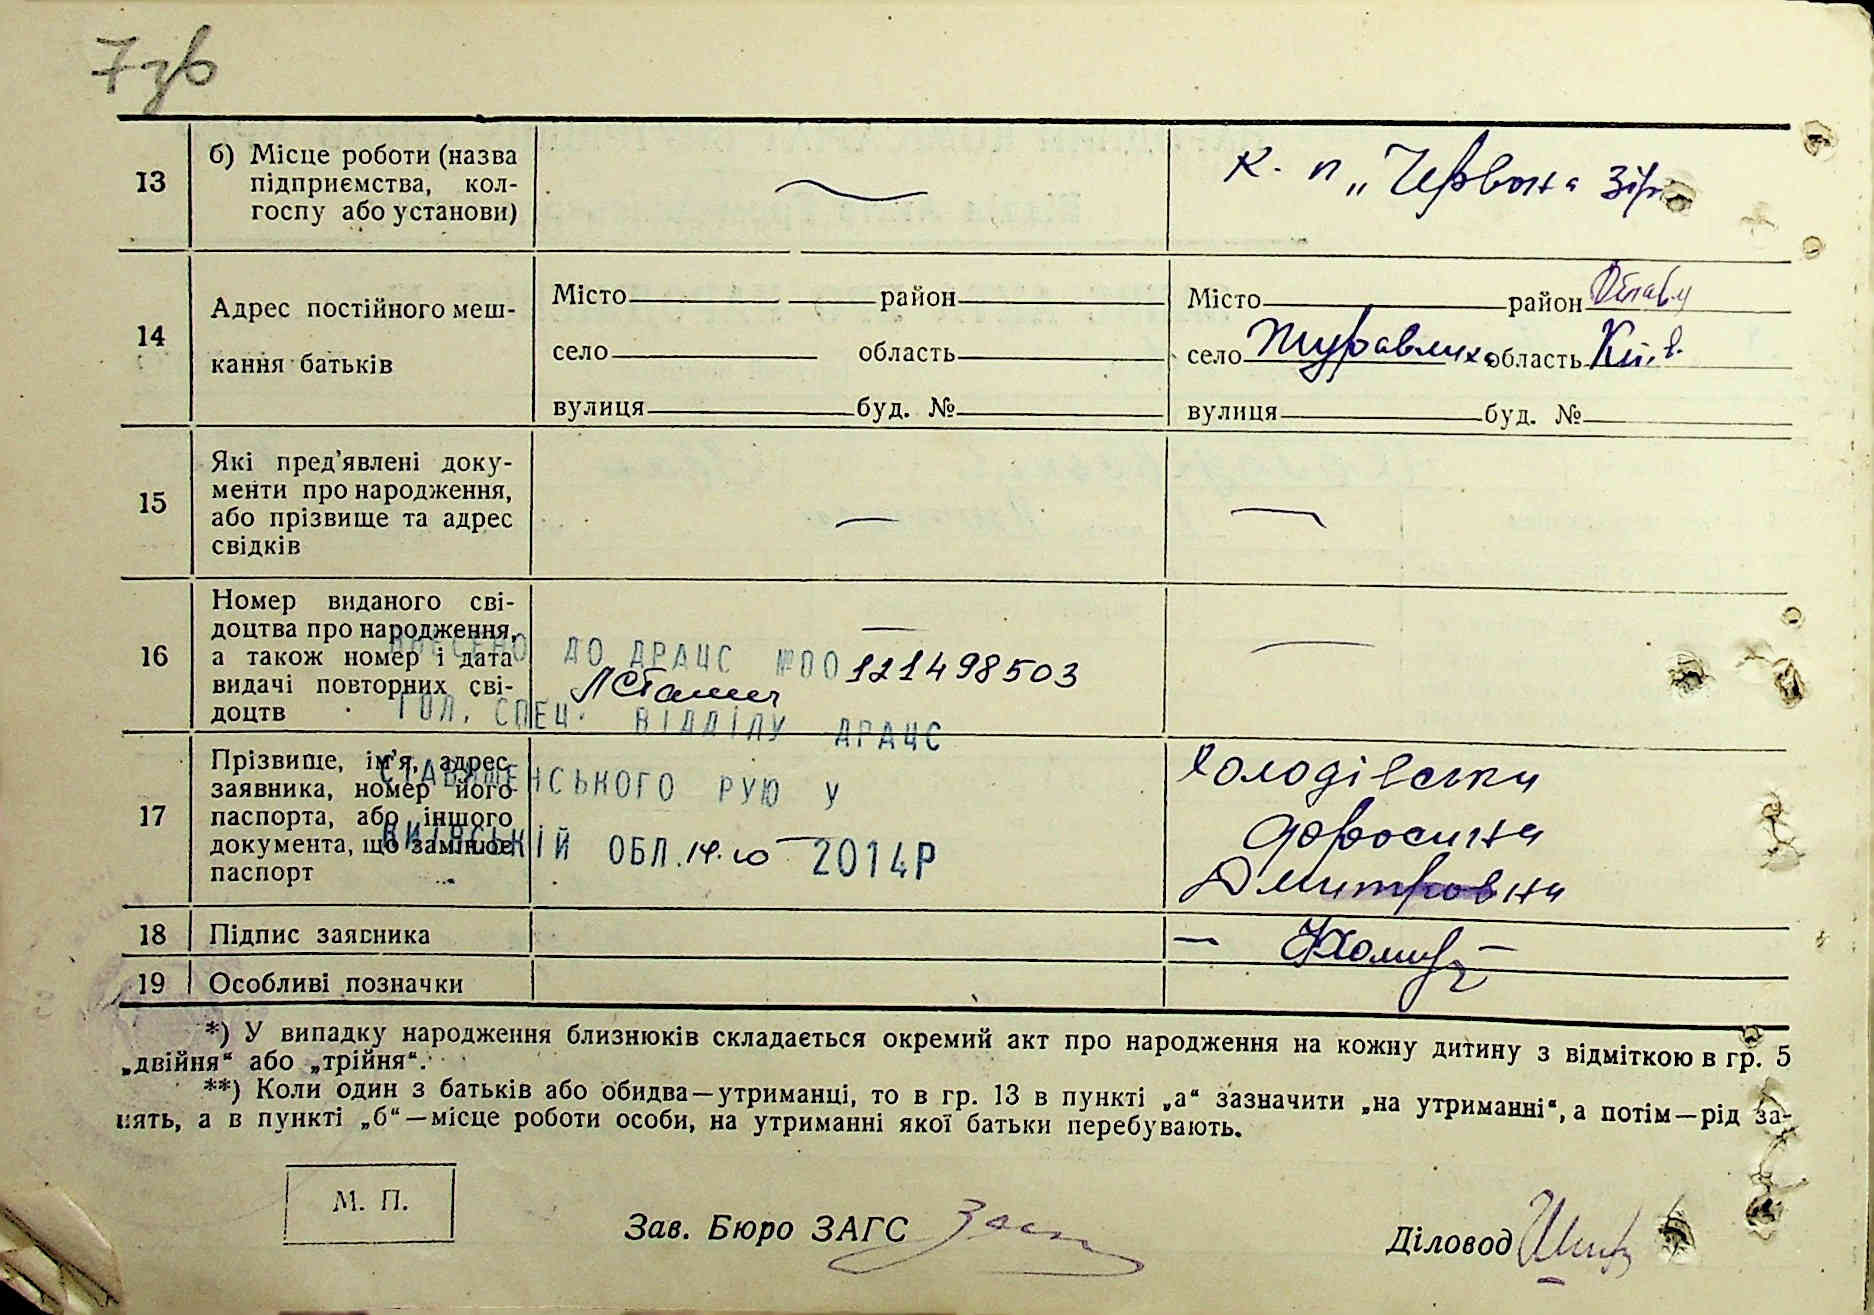 7зв
13
б) Місце роботи (назва
підприємства, кол-
госпу або установи)
к. п „Червона Зірка
14
Адрес постійного меш-
кання батьків
Місто район
село область
вулиця буд. №
Місто район
село Журавлиха область Київ.
вулиця буд. №
15
Які пред'явлені доку-
менти про народження,
або прізвище та адрес
свідків
16
Номер виданого сві-
доцтва про народження,
а також номер і дата
видачі повторних сві-
доцтв
ВНЕСЕНО ДО ДРАЦС №00121498503
ГОЛ. СПЕЦ. ВІДДІЛУ ДРАЦС
СТАВИЩЕНСЬКОГО РУЮ У
КИЇВСЬКІЙ ОБЛ. 14.10 2014Р
17
Прізвище, ім'я, адрес
заявника, номер його
паспорта, або іншого
документа, що замінює
паспорт
Холодівська
Дмитровна
18
Підпис заявника
19
Особливі позначки
*) У випадку народження близнюків складається окремий акт про народження на кожну дитину з відміткою в гр. 5
„двійня“ або „трійня“.
**) Коли один з батьків або обидва—утриманці, то в гр. 13 в пункті „а“ зазначити „на утриманні“, а потім—рід за-
нять, а в пункті „б“—місце роботи особи, на утриманні якої батьки перебувають.
М. П.
Зав. Бюро ЗАГС
Діловод